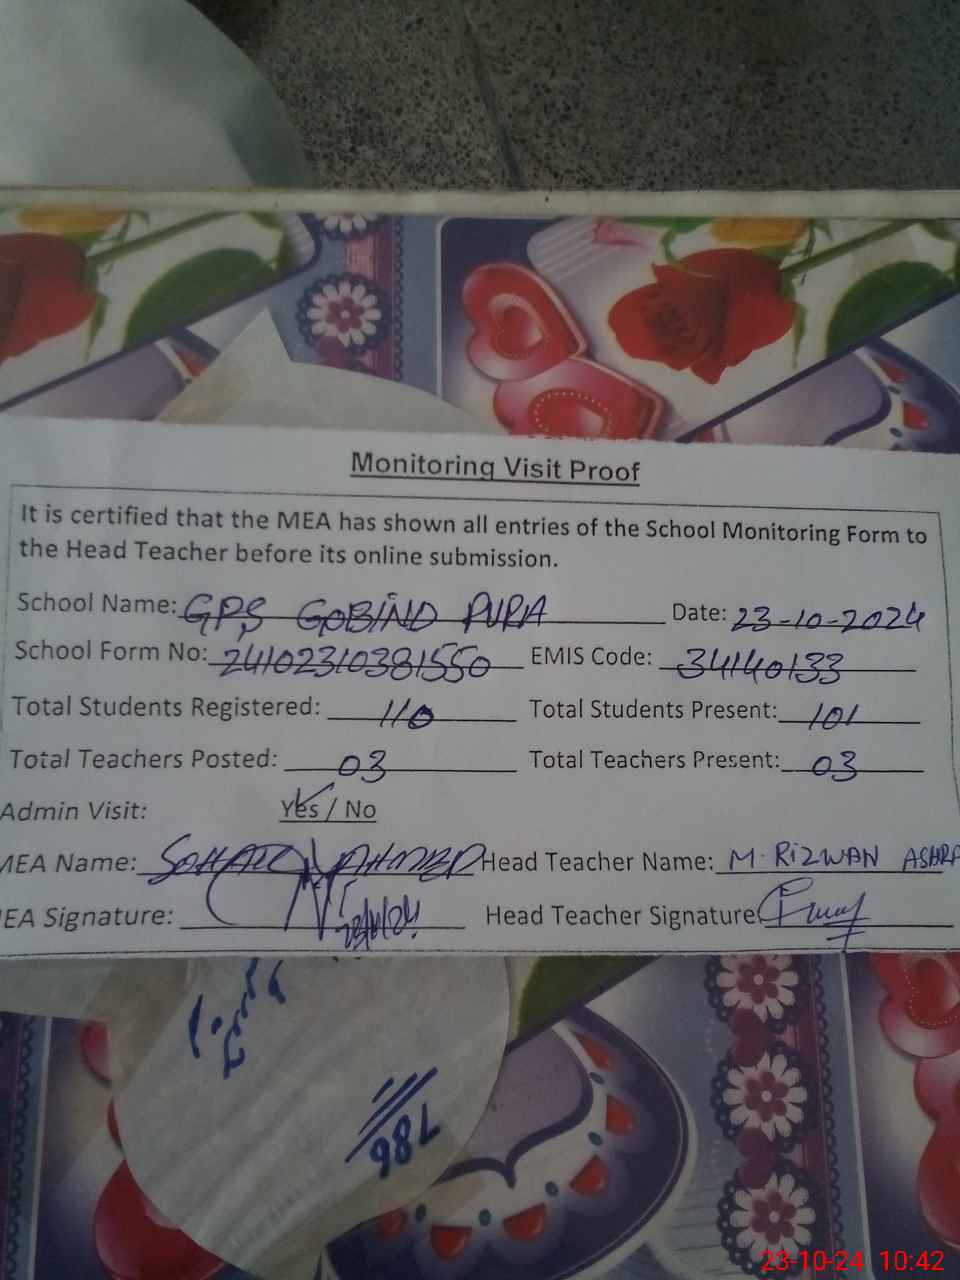 Monitoring Visit Proof
It is certified that the MEA has shown all entries of the School Monitoring Form to
the Head Teacher before its online submission.
School Name: GPS GOBIND PURA Date: 23-10-2024
School Form No: 24102310381550 EMIS Code: 34140133
Total Students Registered: 110 Total Students Present: 101
Total Teachers Posted: 03 Total Teachers Present: 03
Admin Visit: Yes / No
MEA Name: SOHAIL AHMED Head Teacher Name: M. RIZWAN ASHRA
EA Signature: Head Teacher Signature
786
23-10-24 10:42